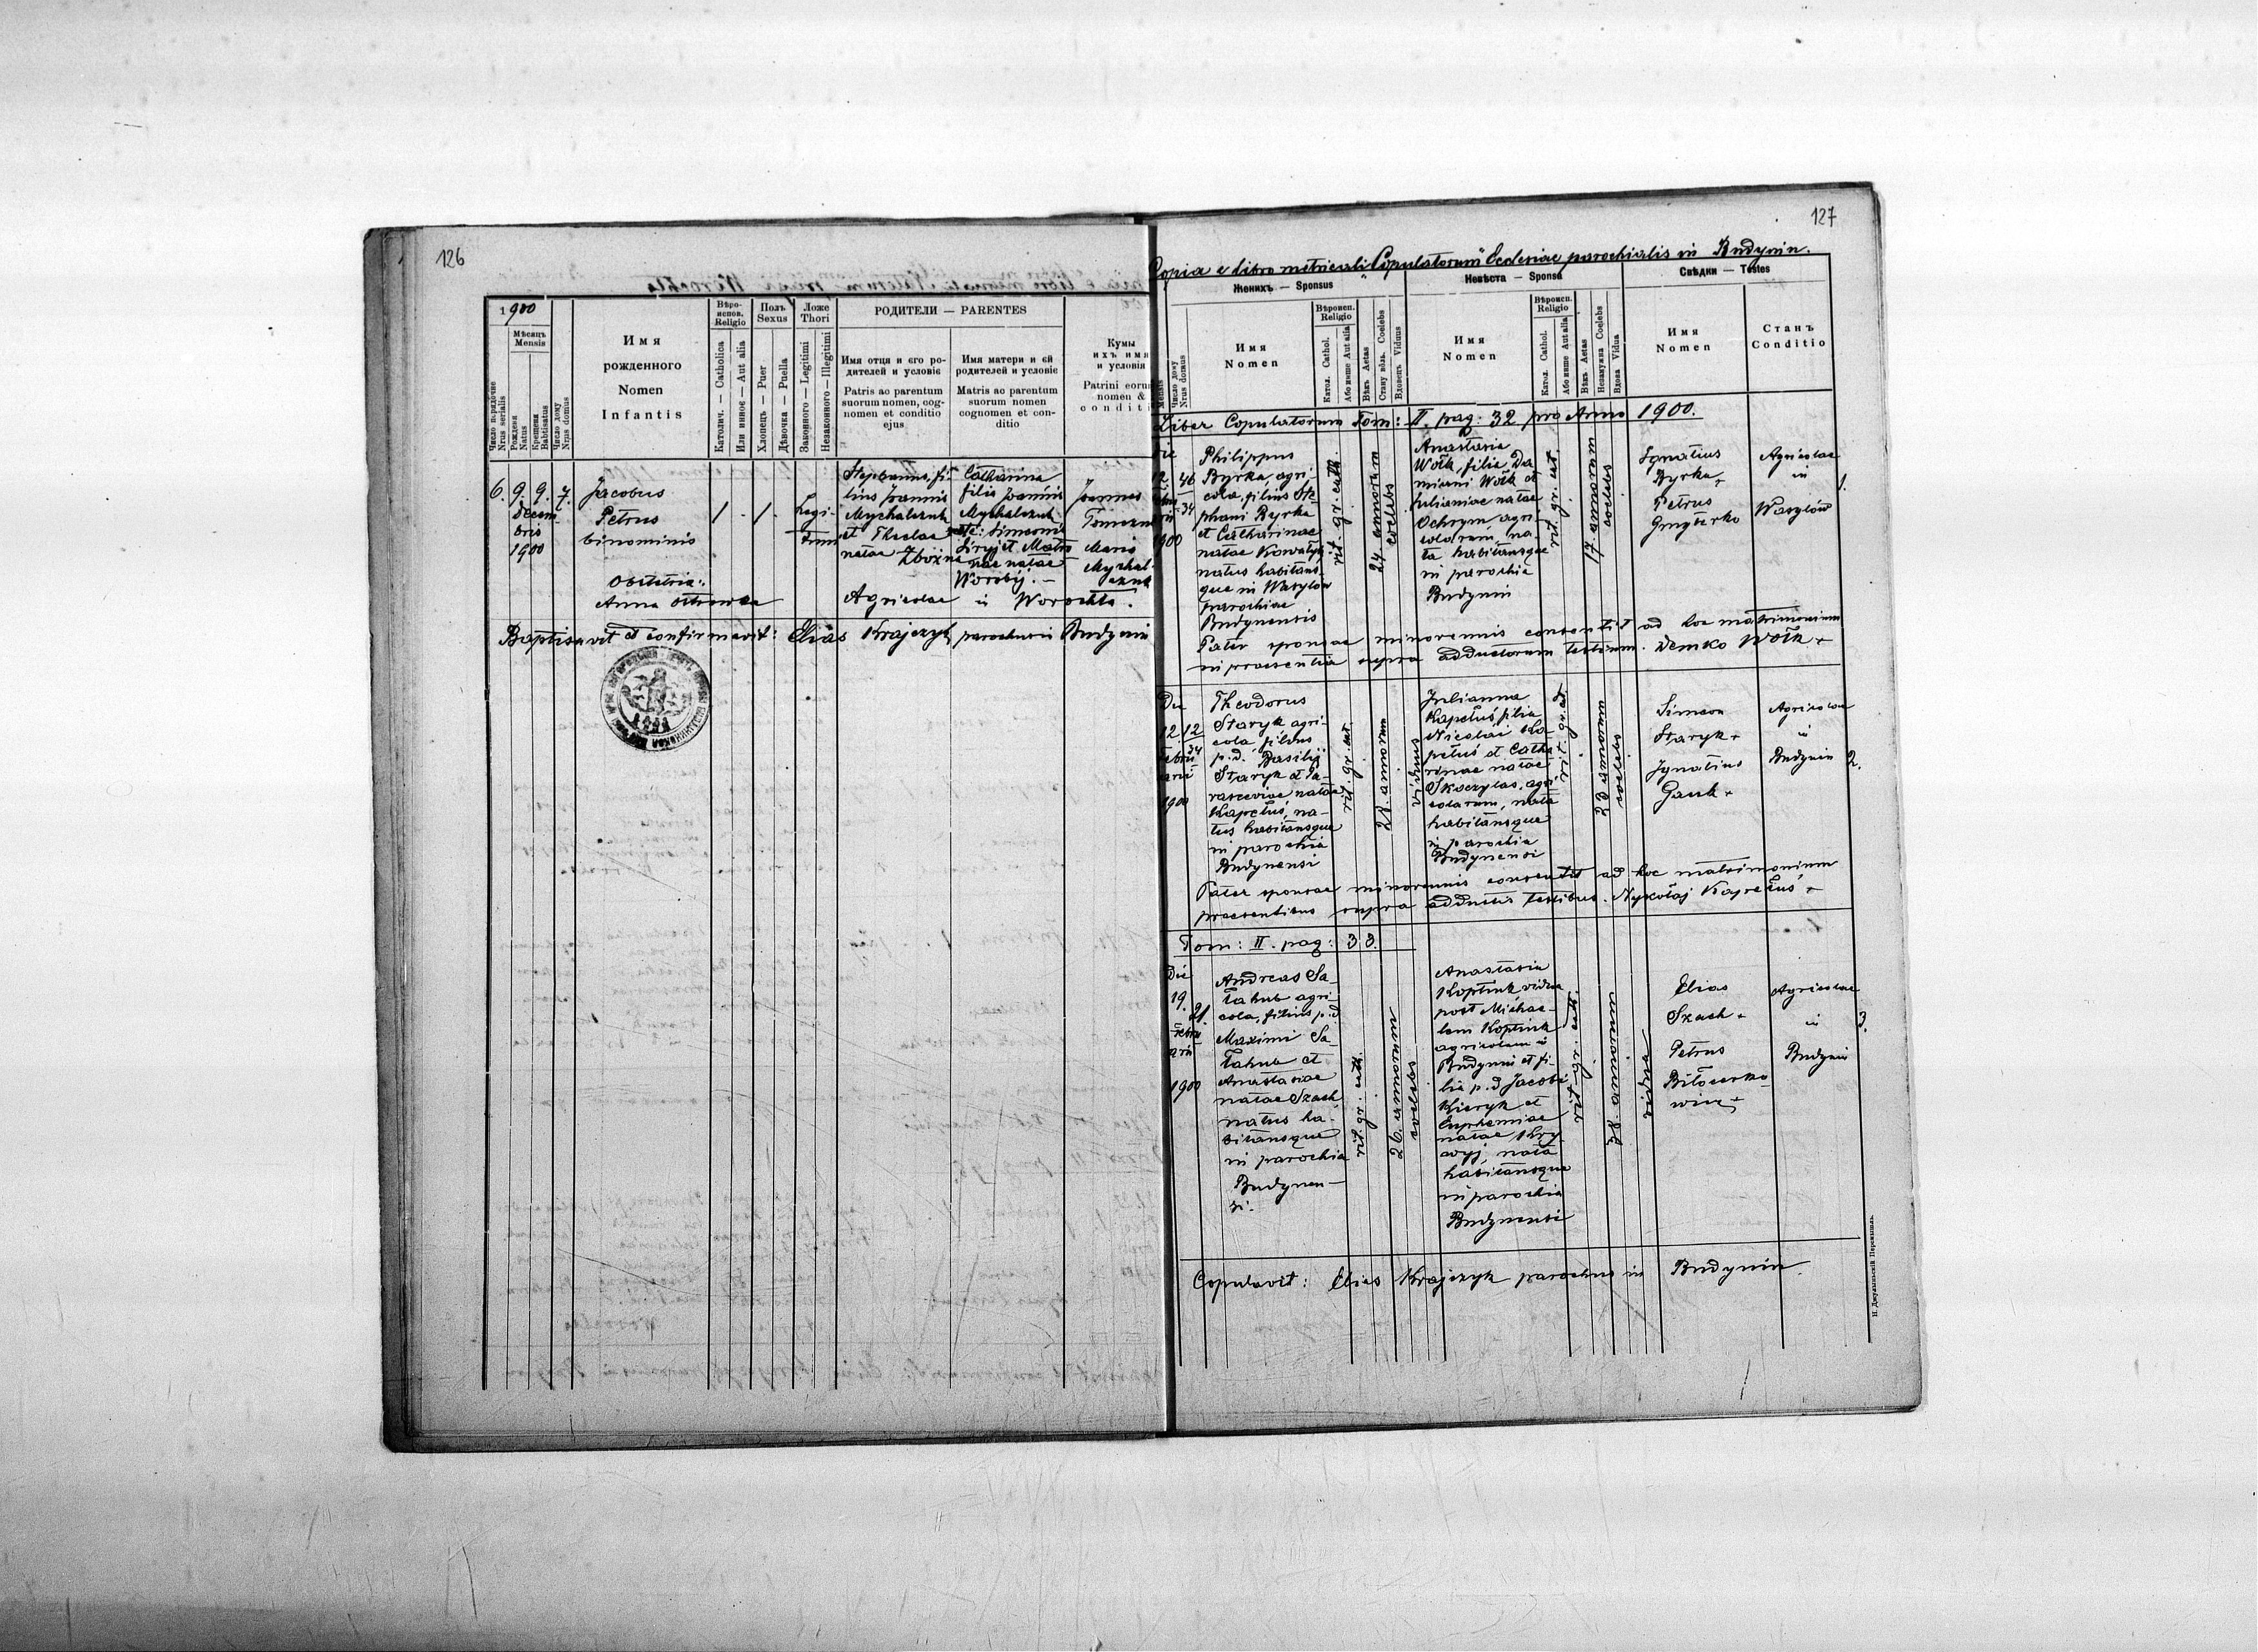 126
1900
Мѣсяць
Mensis
Число порядочне
Nrus serialis
Рождена
Natus
Крещена
Babtisatus
Число дому
Nrus domus
Имя
рожденного
Nomen
Infantis
Вѣро-
испов.
Religio
Католич. — Catholica
Или инноє — Aut alia
Полъ
Sexus
Хлопець — Puer
Дѣвочка — Puella
Ложе
Thori
Законного — Legitimi
Незаконного — Illegitimi
РОДИТЕЛИ — PARENTES
Имя отця и єго ро-
дителей и условіє
Patris ac parentum
suorum nomen, cog-
nomen et conditio
ejus
Имя матери и єй
родителей и условіє
Matris ac parentum
suorum nomen
cognomen et con-
ditio
Кумы
ихъ имя
и условія
Patrini eorum
nomen &
conditi
6. 9. 9. 7.
Decem-
bris
1900
Jacobus
Petrus
binominis
Obstetrix:
Anna Ostrowska
1 - 1 -
Legi-
timi
Stephanus, fi-
lius Joannis
Mychalczuk
et Theclae
natae Zbożna
Catharina
filia Joannis
Mychalczuk
Simeonis
natae
Worobij. —
Agricolae in Worochta.
Joannes
Maria
Mychal-
czuk
Baptisavit et confirmavit: Elias Krajczyk parochus in Budynin
127
Copia e libro metricali Copulatorum Ecclesiae parochialis in Budynin.
Женихъ — Sponsus
Невѣста — Sponsa
Свѣдки — Testes
Mensis
Число дому
Nrus domus
Имя
Nomen
Вѣроисп.
Religio
Катол. Cathol.
Або инше Aut alia
Вѣкъ Aetas
Стану вѣль. Coelebs
Вдовець Viduus
Имя
Nomen
Вѣроисп.
Religio
Катол. Cathol.
Або инше Aut alia
Вѣкъ Aetas
Незамужна Coelebs
Вдова Vidua
Имя
Nomen
Станъ
Conditio
Liber Copulatorum Tom: II. pag: 32 pro Anno 1900.
Die
12. 46
34
1900
Philippus
Byrka, agri-
cola, filius Ste-
phani Byrka
et Catharinae
natae Kowalyk
natus habitans-
que in Wasylów
parochiae
Budynensis
rit. gr. cath.
24 annorum
coelebs
Anastasia
Wołk, filia Da-
miani Wołk et
Julianiae natae
Ochrym, agri-
colarum, na-
ta habitansque
in parochia
Budynin
rit. gr. cat.
17 annorum
coelebs
Ignatius
Byrka +
Petrus
Agricolae
in
Wasylów
1.
Pater sponsae minorennis consentit ad hoc matrimonium
in praesentia supra adductorum testium. Demko Wołk +
Die
12. 12
34
Febru-
arii
1900
Theodorus
Staryk agri-
cola filius
p.d. Basilij
Staryk et Pa-
rasceviae natae
Kapeluś, na-
tus habitansque
in parochia
Budynensi
rit. gr. cat.
28. annorum
viduus
Julianna
Kapeluś filia
Nicolai Ka-
peluś et Catha-
rinae natae
Skoczylas, agri-
colarum, nata
habitansque
in parochia
Budynensi
rit. gr. cat.
23 annorum
coelebs
Simeon
Staryk +
Ignatius
Gauk +
Agricolae
in
Budynin
2.
Pater sponsae minorennis consentit ad hoc matrimonium
praesentibus supra adductis testibus. Nykołaj Kapeluś +
Tom: II. pag: 33.
Die
19. 21.
Febru-
arii
1900
Andreas Sa-
łahub agri-
cola, filius p.d.
Maximi Sa-
łahub et
Anastasiae
natae Szach,
natus ha-
bitansque
in parochia
Budynen-
si.
rit. gr. cath.
26. annorum
coelebs
Anastasia
Koptiuk vidua
post Michae-
lem Koptiuk
agricolam in
Budynin et fi-
lia p.d Jacobi
Kieryk et
Euphemiae
natae Kry-
wyj, nata
habitansque
in parochia
Budynensi
rit. gr. cath.
28. annorum
vidua
Elias
Szach +
Petrus
Biłousko-
wicz +
Agricolae
in
Budynin
3.
Copulavit: Elias Krajczyk parochus in Budynin.
Н. Джулыньскій Перемышль.